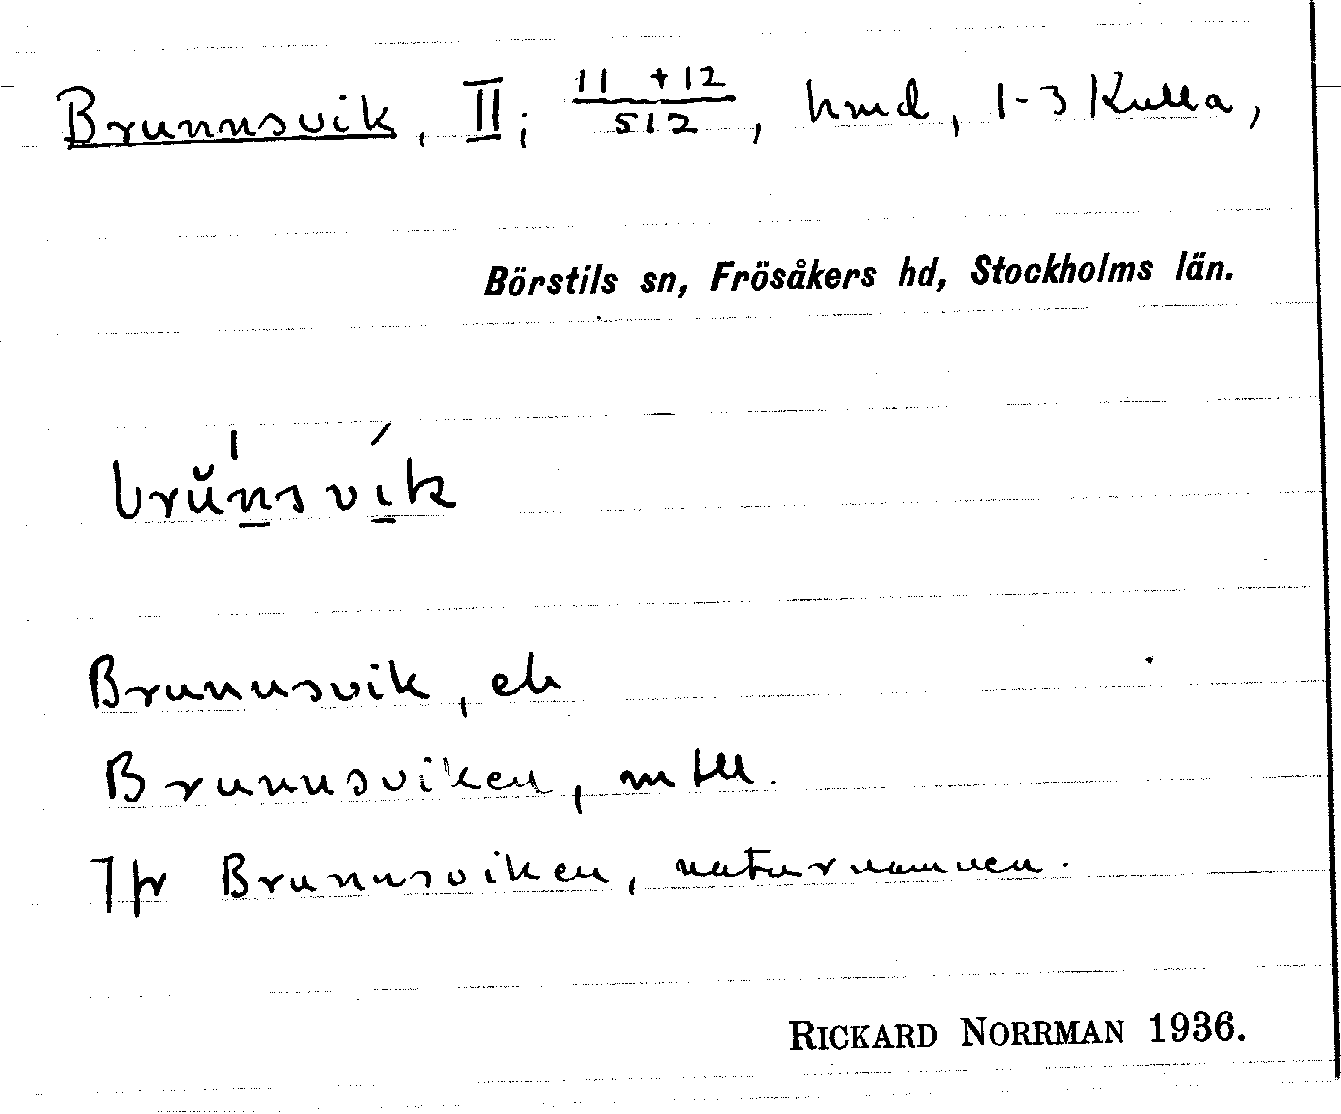 Brunnsvik, II; 11 + 12 / 512, hmd, 1-3 Kulla,
Börstils sn, Frösåkers hd, Stockholms län.
brŭnsvik
Brunnsvik, ek
Brunnsviken, mtll.
Jfr Brunnsviken, naturnamnen.
RICKARD NORRMAN 1936.